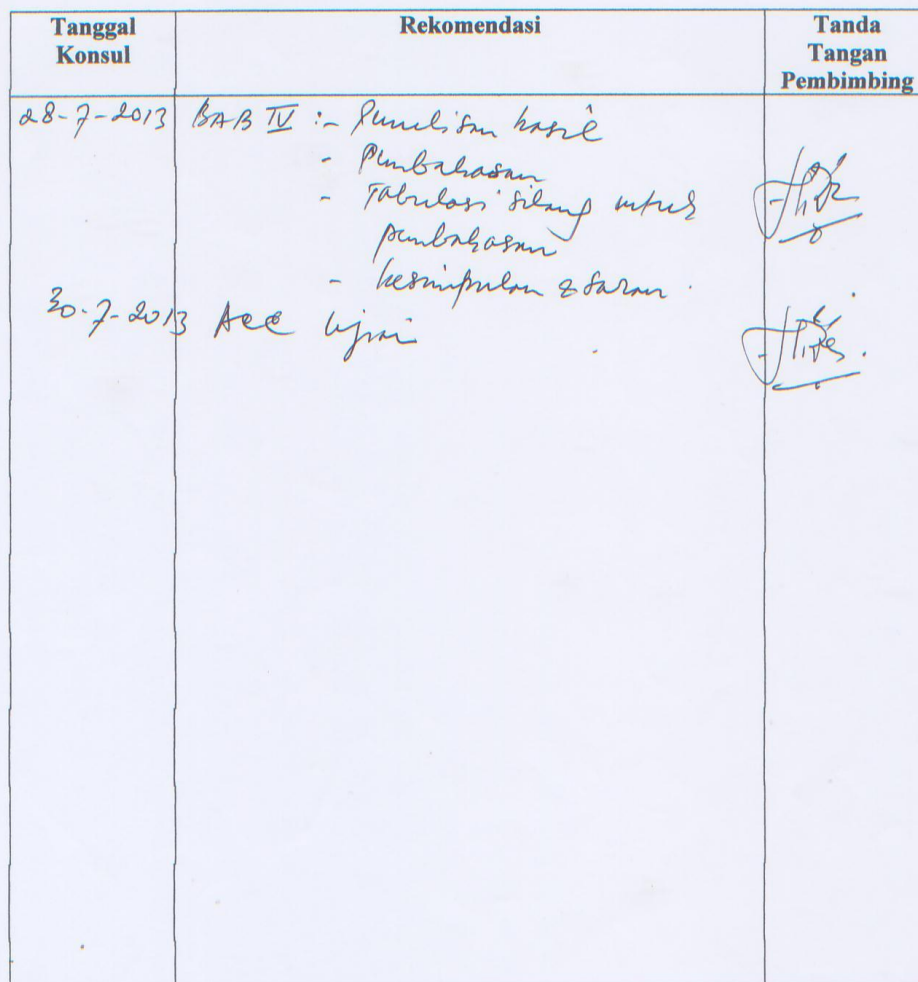 Tanggal Konsul
Rekomendasi
Tanda Tangan Pembimbing
28-7-2013 BAB IV :- Penulisan hasil
- Pembahasan
- Tabulasi silang untuk
pembahasan
- kesimpulan & saran.
30-7-2013 Acc Ujian